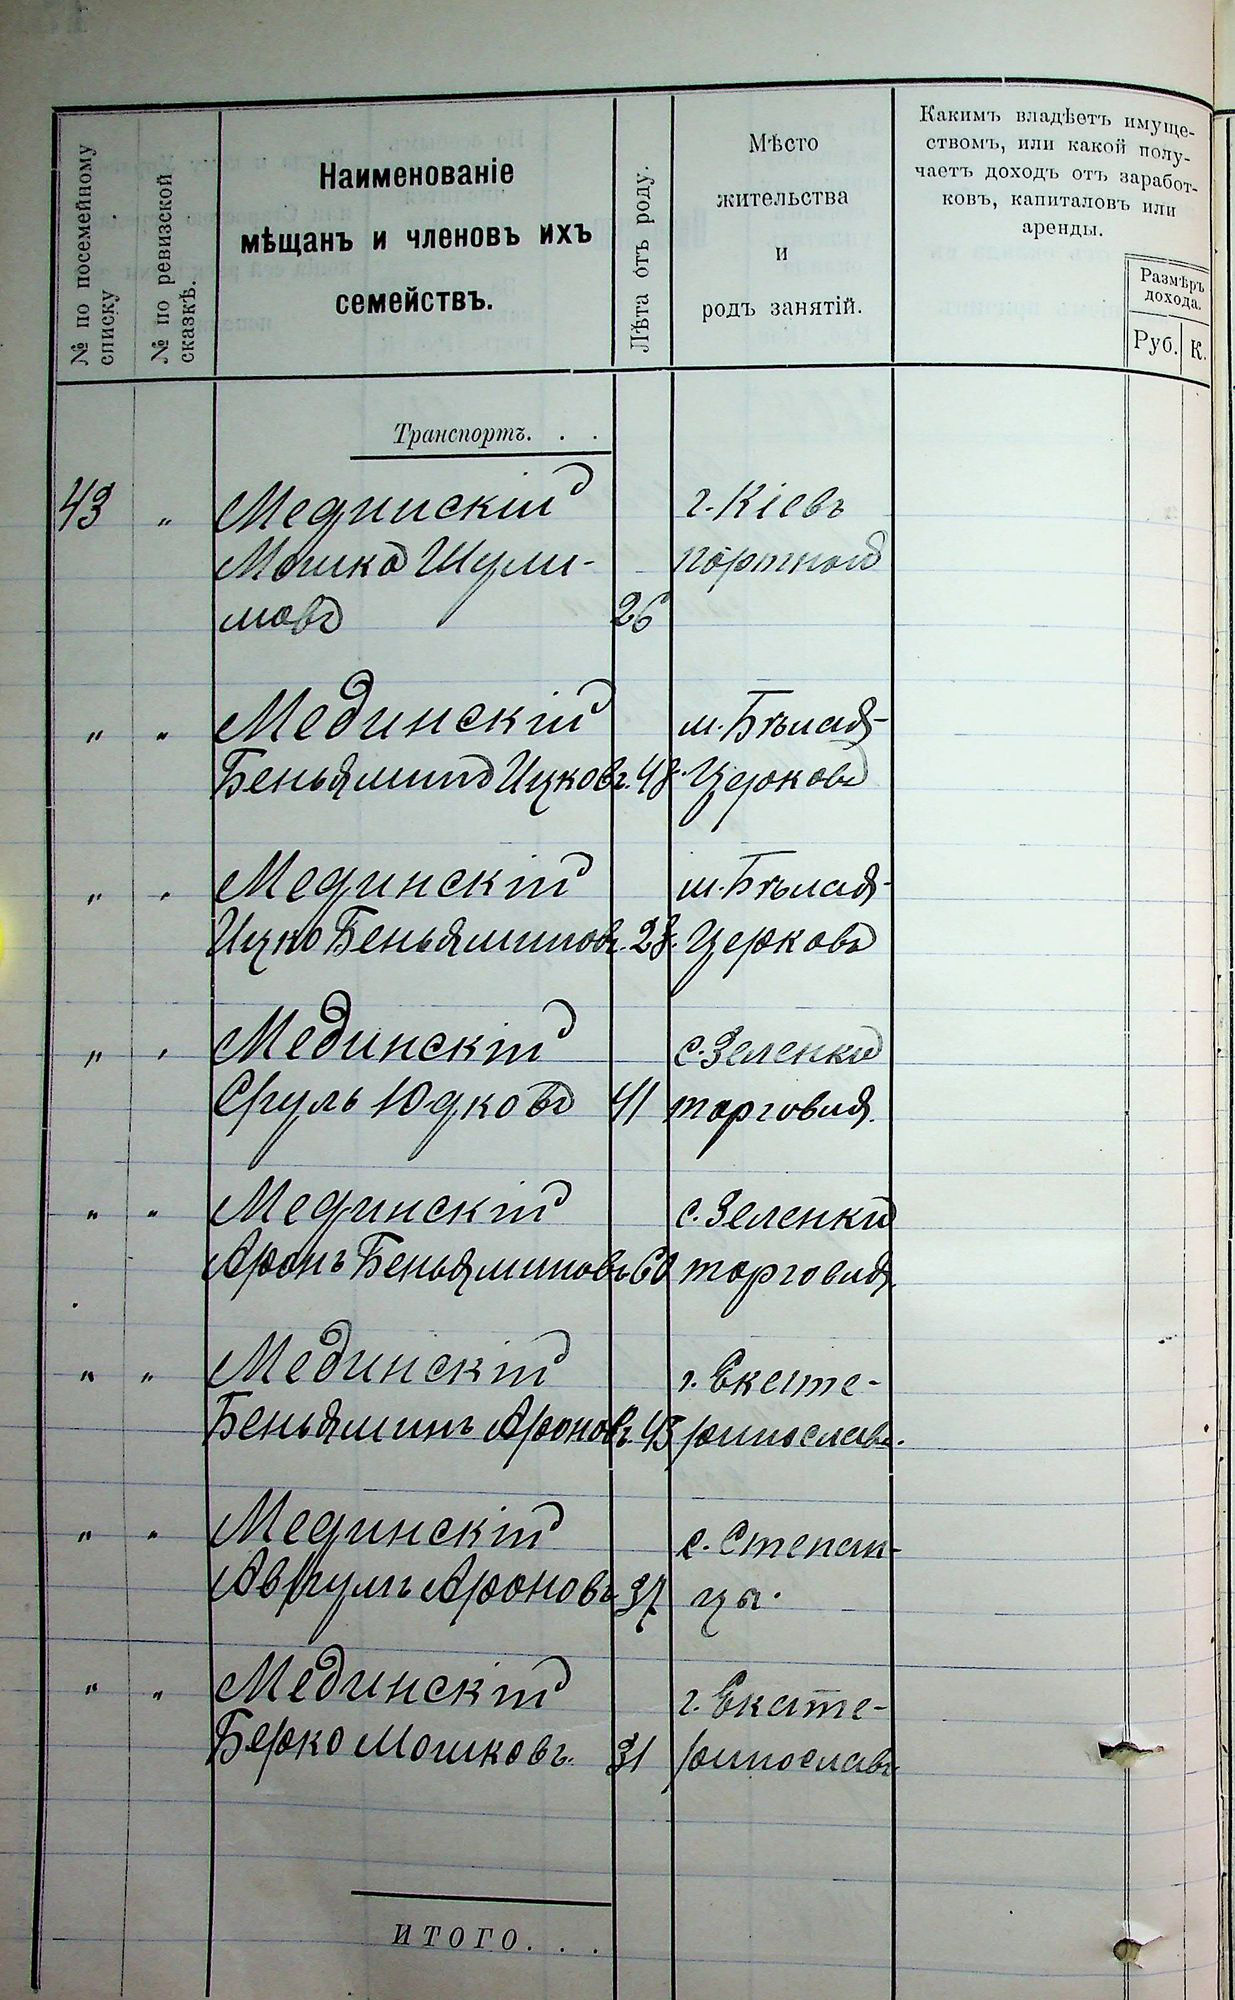 № по посемейному
списку
№ по ревизской
сказкѣ.
Наименованіе
мѣщанъ и членовъ ихъ
семействъ.
Лѣта отъ роду.
Мѣсто
жительства
и
родъ занятій.
Какимъ владѣетъ имуще-
ствомъ, или какой полу-
чаетъ доходъ отъ заработ-
ковъ, капиталовъ или
аренды.
Размѣръ
дохода.
Руб. К.
Транспортъ. . .
43 „ Мединскій г. Кіевъ
Мошко Шули- портной
мовъ 26
„ „ Мединскій м. Бѣлая-
Беньяминъ Ицковъ. 48. Церковь
„ „ Мединскій м. Бѣлая-
Ицко Беньяминовъ. 28. Церковь
„ „ Мединскій с. Зеленки
Сруль Юдковъ 41 торговля.
„ „ Мединскій с. Зеленки
Аронъ Беньяминовъ 60 торговля.
„ „ Мединскій г. Екате-
Беньяминъ Ароновъ. 45 ринославъ.
„ „ Мединскій с. Степан-
Аврумъ Ароновъ 37 цы.
„ „ Мединскій г. Екате-
Берко Мошковъ. 31 ринославъ
ИТОГО. . .